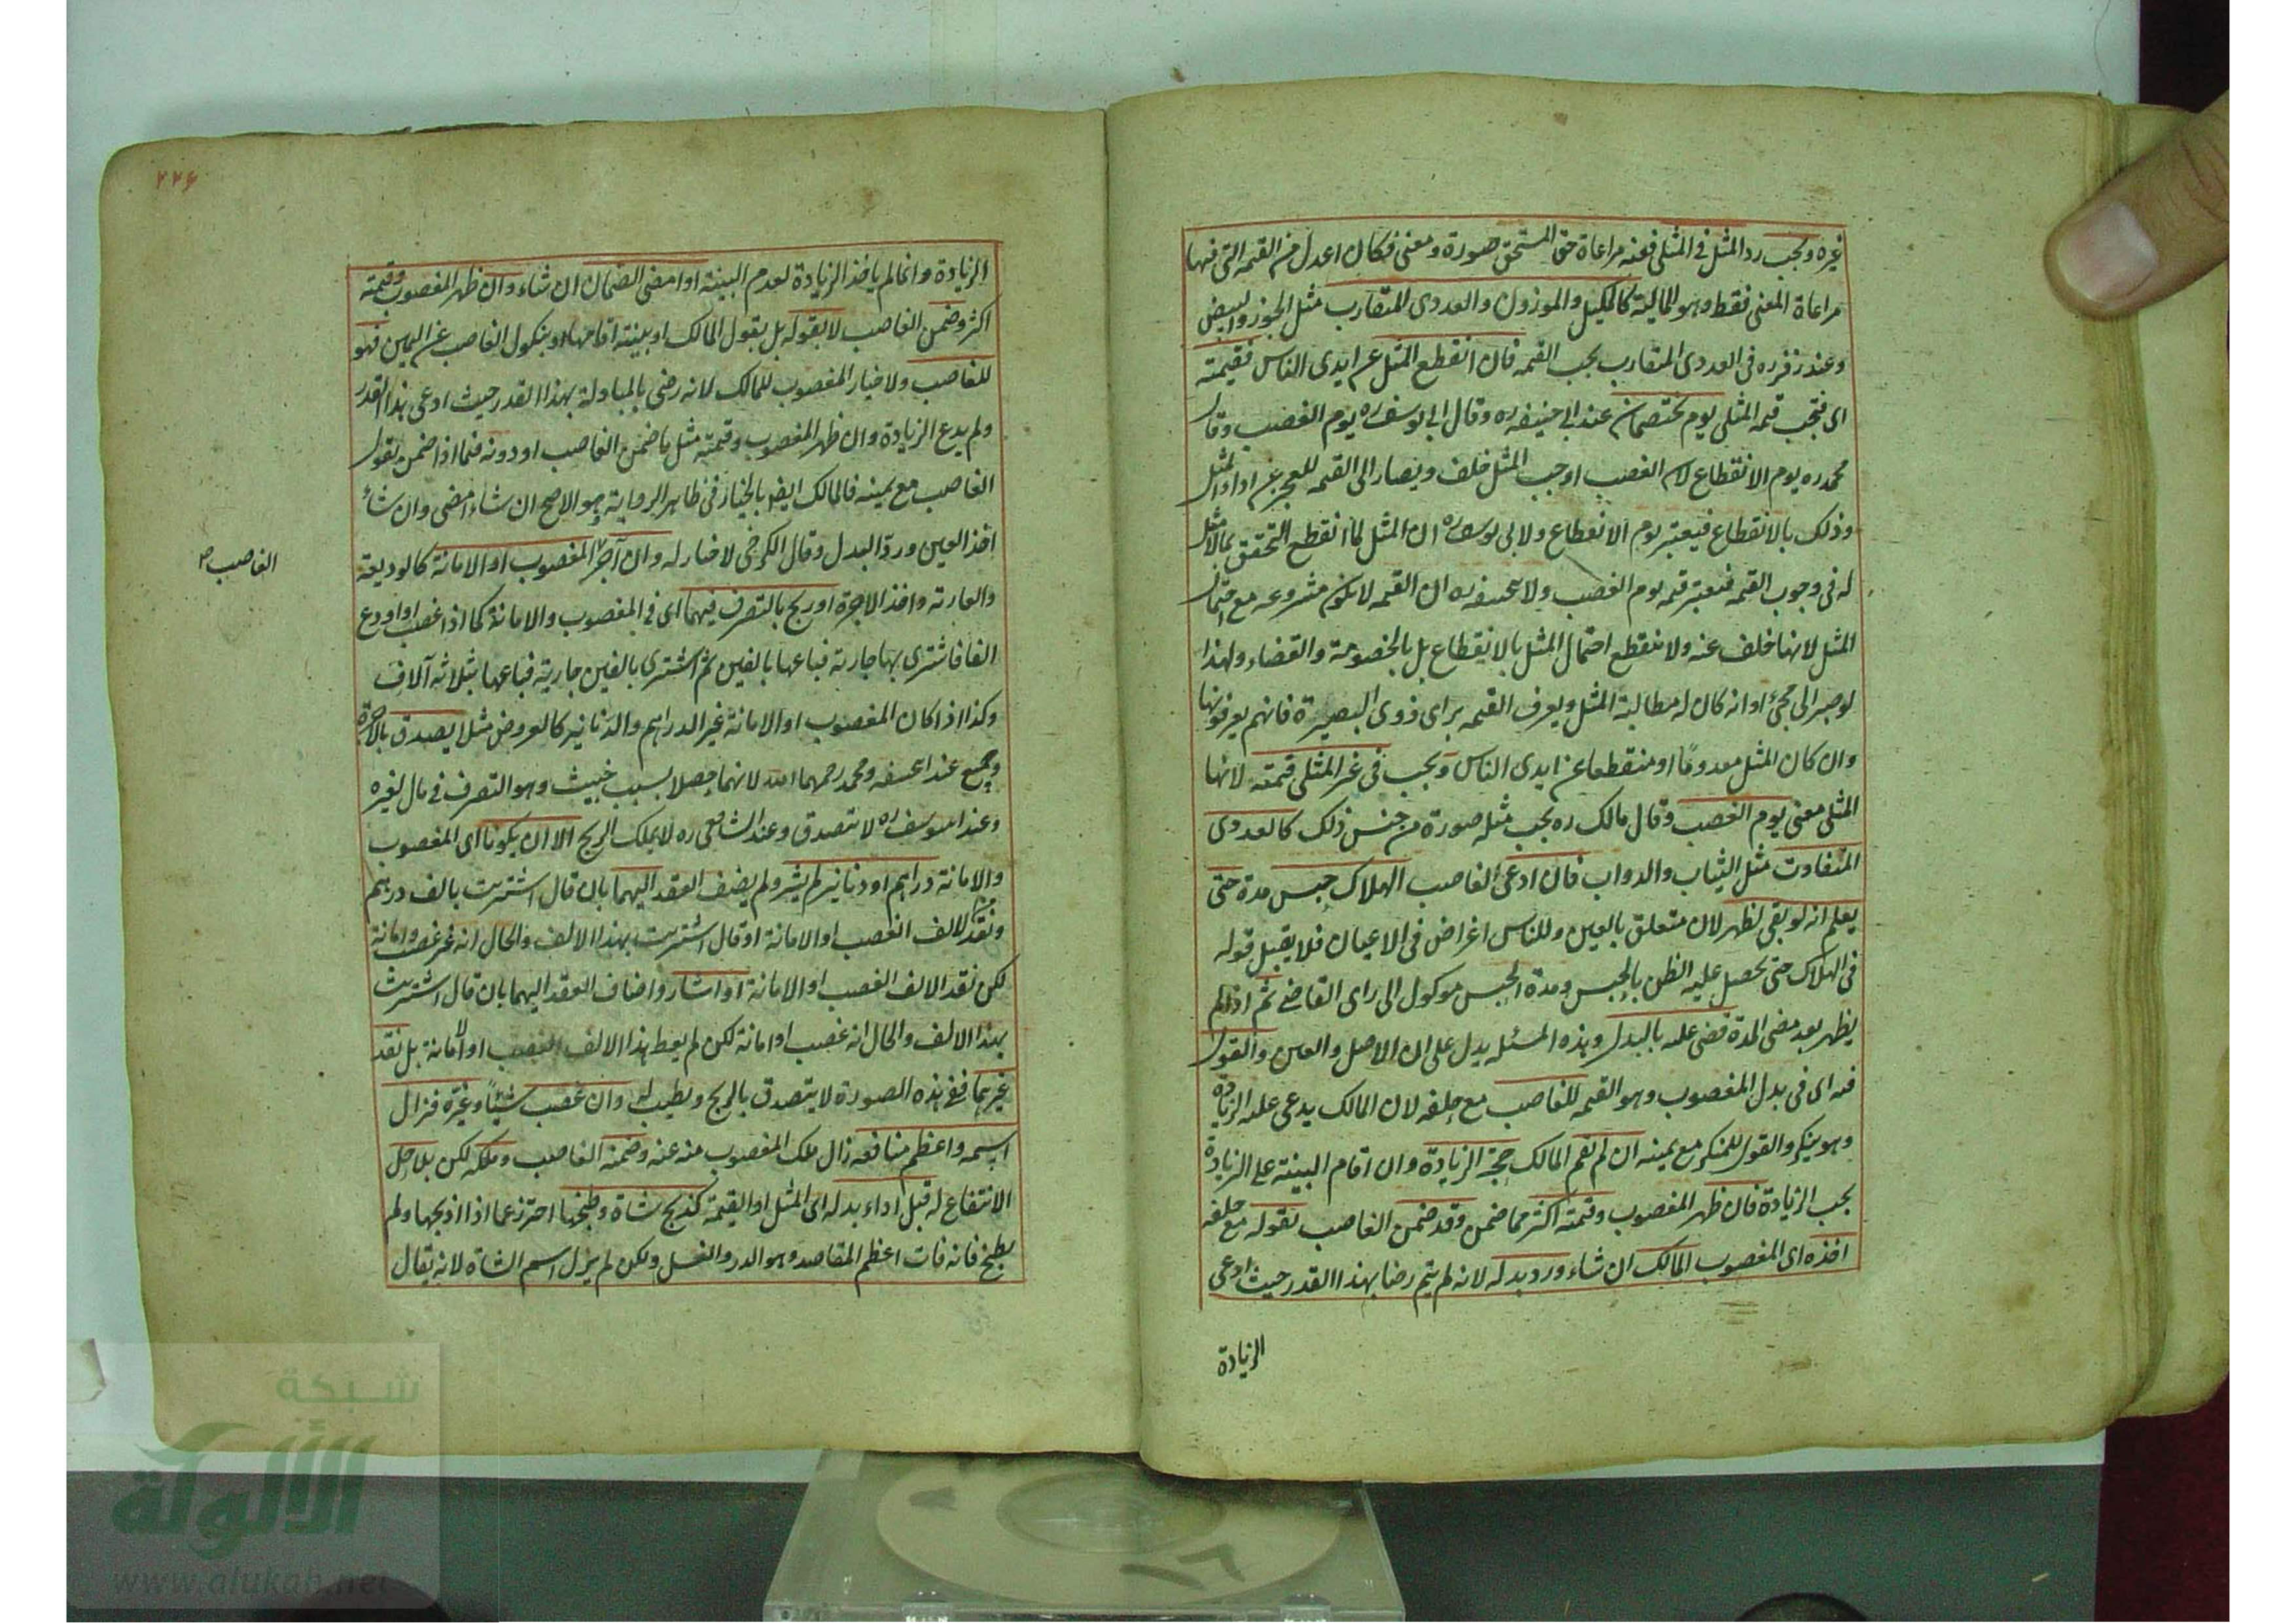 غيره ويجب رد المثل في المثلي فعنه مراعاة حق المستحق صورة ومعنى فكان اعدل من القيمة التي فيها
مراعاة المعنى فقط وهو المالية كالمكيل والموزون والعددي المتقارب مثل الجوز والبيض
وعند زفر ره في العددي المتقارب يجب القيمة فان انقطع المثل عن ايدي الناس فقيمته
اي فتجب قيمة المثلي يوم يختصمان عند ابي حنيفه ره وقال ابي يوسف ره يوم الغصب وقال
محمد ره يوم الانقطاع لان الغصب اوجب المثل خلف ويصار الى القيمة للعجز عن اداء المثل
وذلك بالانقطاع فيعتبر يوم الانقطاع ولابي يوسف ره ان المثل لما انقطع التحقق بما لا مثل
له في وجوب القيمة فتعتبر قيمه يوم الغصب ولابي حنيفه ره ان القيمة لا تكون مشروعه مع احتمال
المثل لانها خلف عنه ولا ينقطع احتمال المثل بالانقطاع بل بالخصومة والقضاء ولهذا
لو صبر الى مجئ اوانه كان له مطالبة المثل ويعرف القيمه براى ذوى البصيرة فانهم يعرفونها
وان كان المثل معدوما او منقطعا عن ايدي الناس ويجب في غير المثلي قيمته لانها
المثلي معنى يوم الغصب وقال مالك ره يجب مثله صورة من جنس ذلك كالعددي
المتفاوت مثل الثياب والدواب فان ادعى الغاصب الهلاك حبس مدة حتى
يعلم انه لو بقي لظهر لان متعلق بالعين وللناس اغراض في الاعيان فلا يقبل قوله
في الهلاك حتى يحصل عليه الظن بالحبس ومدة الحبس موكول الى راى القاضي ثم اذا لم
يظهر بعد مضي المدة قضى عليه بالبدل وهذه المسئله يدل على ان الاصل والعين والقول
فيه اي في بدل المغصوب وهو القيمه للغاصب مع حلفه لان المالك يدعي عليه الزيادة
وهو ينكر والقول للمنكر مع يمينه ان لم تقم المالك حجة الزيادة وان اقام البينة على الزيادة
يجب الزيادة فان ظهر المغصوب وقيمته اكثر مما ضمن وقد ضمن الغاصب بقوله مع حلفه
اخذه اي المغصوب المالك ان شاء ورد بدله لانه لم يتم رضا بهذا القدر حيث ادعى
الزيادة
٢٢٦
الزيادة وانما لم ياخذ الزيادة لعدم البينة او امضى الضمان ان شاء وان ظهر المغصوب وقيمته
اكثر وضمن الغاصب لا بقوله بل بقول المالك او ببينة اقامها او بنكول الغاصب عن اليمين فهو
للغاصب ولا خيار المغصوب للمالك لانه رضي بالمبادلة بهذا القدر حيث ادعى هذا القدر
ولم يدع الزيادة وان ظهر المغصوب وقيمته مثل ما ضمن الغاصب او دونه فيما اذا ضمن بقول
الغاصب مع يمينه فالمالك ايضا بالخيار في ظاهر الرواية وهو الاصح ان شاء امضى وان شاء
اخذ العين ورد البدل وقال الكرخي لا خيار له وان آجر المغصوب او الامانة كالوديعة
الغاصب صح
والعارية واخذ الاجرة او ربح بالتصرف فيهما اي في المغصوب والامانة كما اذا غصب او اودع
الفا فاشترى بها جارية فباعها بالفين ثم اشترى بالفين جارية فباعها بثلاثة آلاف
وكذا اذا كان المغصوب او الامانة غير الدراهم والدنانير كالعروض مثلا يصدق بالاجرة
وربح عند ابي حنيفه ومحمد رحمهما الله لانهما حصلا بسبب خبيث وهو التصرف في مال لغيره
وعند ابي يوسف ره لا يتصدق وعند الشافعي ره لا يملك الربح الا ان يكونا اي المغصوب
والامانة دراهم او دنانير لم يشر ولم يضف العقد اليهما بان قال اشتريت بالف درهم
ونقد الالف الغصب او الامانة او قال اشتريت بهذا الالف والحال انه غير غصب وامانة
لكن نقد الالف الغصب او الامانة او اشار واضاف العقد اليهما بان قال اشتريت
بهذا الالف والحال انه غصب او امانة لكن لم يعط هذا الالف الغصب او الامانة بل نقد
غيرهما ففي هذه الصورة لا يتصدق بالربح ويطيب له وان غصب شيئا وغيره فزال
اسمه واعظم منافعه زال ملك المغصوب منه عنه وضمنه الغاصب وملكه لكن بلا حل
الانتفاع له قبل اداء بدله اي المثل او القيمة كذبح شاة وطبخها احترز عما اذا ذبحها ولم
يطبخ فانه فات اعظم المقاصد وهو الدر والنسل ولكن لم يزل اسم الشاة لانه يقال
شبكة
الألوكة
www.alukah.net